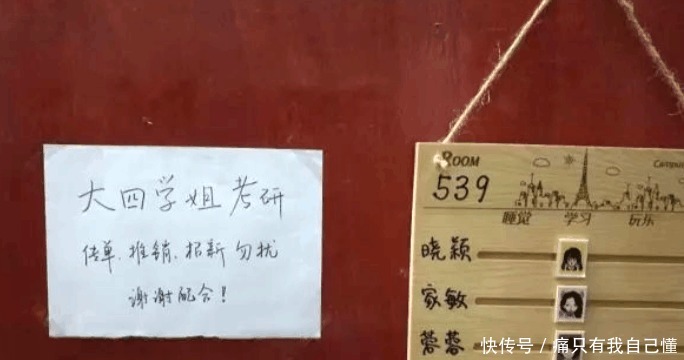 大四学姐考研
传单、推销、招新勿扰
谢谢配合！
ROOM
539
Campus
睡觉 学习 玩乐
晓颖
家敏
蓉蓉
快传号 / 痛只有我自己懂